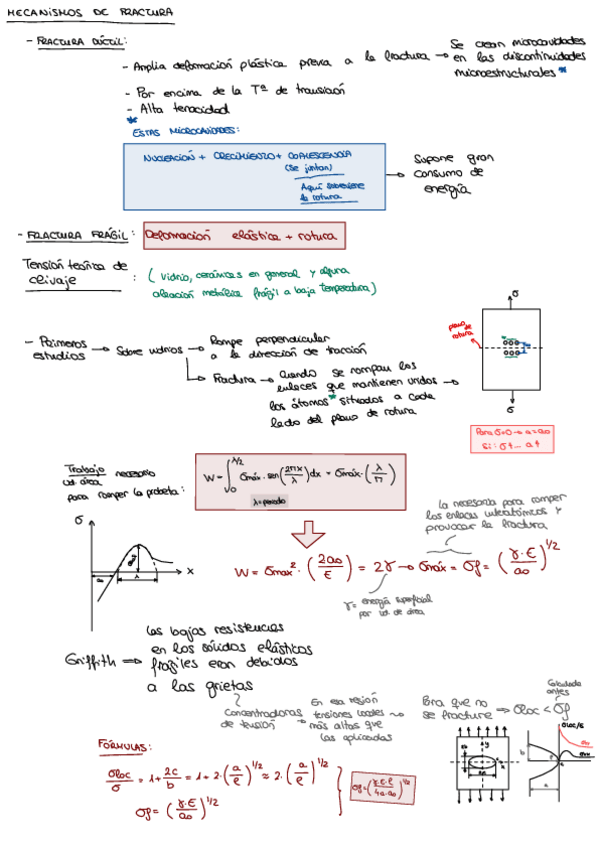 MECANISMOS DE FRACTURA
- FRACTURA DÚCTIL:
- Amplia deformación plástica previa a la fractura → Se crean microcavidades
en las discontinuidades
microestructurales *
- Por encima de la Tª de transición
- Alta tenacidad
*
ESTAS MICROCAVIDADES:
NUCLEACIÓN + CRECIMIENTO + COALESCENCIA
(Se juntan)
Aquí sobreviene
la rotura
→ Supone gran
consumo de
energía
- FRACTURA FRÁGIL: Deformación elástica + rotura
Tensión teórica de
clivaje :
(vidrio, cerámicas en general y alguna
aleación metálica frágil a baja temperatura)
- Primeros
estudios → Sobre vidrios → Rompe perpendicular
a la dirección de tracción
→ Fractura → Cuando se rompan los
enlaces que mantienen unidos →
los átomos * situados a cada
lado del plano de rotura
σ
plano de
rotura
σ
Para σ=0 → a=a₀
Si: σ↑... a↑
Trabajo necesario
ud. área
para romper la probeta:
W = ∫₀^(λ/2) σmáx · sen(2πx/λ) dx = σmáx · (λ/π)
λ = periodo
σ
x
a₀
λ
W = σmáx² · (2a₀/E) = 2γ → σmáx = σf = (γ·E/a₀)^1/2
γ = energía superficial
por ud. de área
la necesaria para romper
los enlaces interatómicos y
provocar la fractura
Griffith → las bajas resistencias
en los sólidos elásticos
frágiles eran debidos
a las grietas
Concentradoras
de tensión
→ En esa región
tensiones locales
más altas que
las aplicadas
Para que no
se fracture → σloc < σf
Calculada
antes
FÓRMULAS:
σloc/σ = 1 + 2c/b = 1 + 2·(a/ρ)^1/2 ≈ 2·(a/ρ)^1/2
σf = (γ·E/a₀)^1/2
σf = (γ·E·ρ/4a·a₀)^1/2
y
x
2b
σloc/σ
b